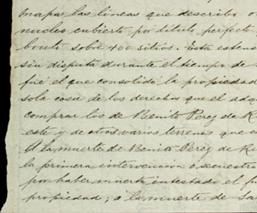 mapa las lineas que describo o
nucles cubierto por titulo perfecto
bonito sobre 400 sitios. Esta esten
sin disputa durante el tiempo de
fué el que consolidó la propiedad
sola cosa de los derechos que el adq
comprar los de Benito Perez de R
este y de otros varios terrenos que
A la muerte de Benito Perez de R
la primera intervencion o secuestro
por haber muerto intestado el fu
propiedad; a la muerte de Sa